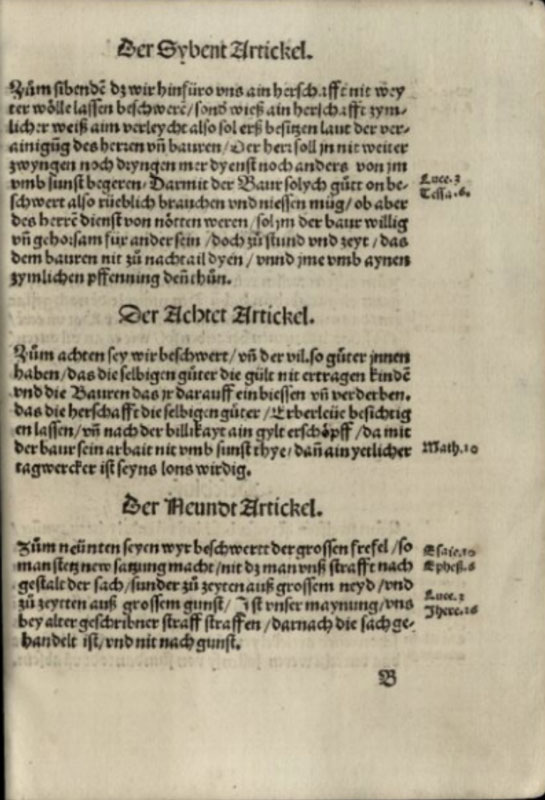 Der Sybent Artickel.
Zům sibendẽ dz wir hinfüro vns ain herschafft nit wey
ter wölle lassen beschwerẽ/sonď wieß ain herschafft zym-
licher weiß aim verleycht also sol erß besitzen laut der ver-
ainigũg des herren vñ bauren/Der herr soll jn nit weiter
zwyngen noch dryngen mer dyenst noch anders von jm
vmb sunst begeren. Darmit der Baur solych gůtt on be- Luce.3
schwert also rüeblich brauchen vnd niessen müg/ob aber Tessa.6.
des herrẽ dienst von nötten weren/sol jm der baur willig
vñ gehorsam für ander sein/doch zů stund vnd zeyt/das
dem bauren nit zů nachtail dyen/vnnd jme vmb aynen
zymlichen pffenning deñ thůn.
Der Achtet Artickel.
Zům achten sey wir beschwert/vñ der vil. so güter jnnen
haben/das die selbigen güter die gült nit ertragen kindẽ
vnd die Bauren das jr darauff einbiessen vñ verderben.
das die herschafft die selbigen güter/Erberleüe besichtig
en lassen/vñ nach der billikayt ain gylt erschöpff/da mit
der baur sein arbait nit vmb sunst thye/dañ ain yetlicher Math.10
tagwercker ist seyns lons wirdig.
Der Neundt Artickel.
Zům neünten seyen wyr beschwertt der grossen frefel/so Esaie.10
man stetz new satzung macht/nit dz man vnß strafft nach Ephesi.6
gestalt der sach/sunder zů zeyten auß grossem neyd/vnd
zů zeytten auß grossem gunst/Ist vnser maynung/vns Luce.3
bey alter geschribner straff straffen/darnach die sach ge- Jhere.26
handelt ist/vnd nit nach gunst.
B